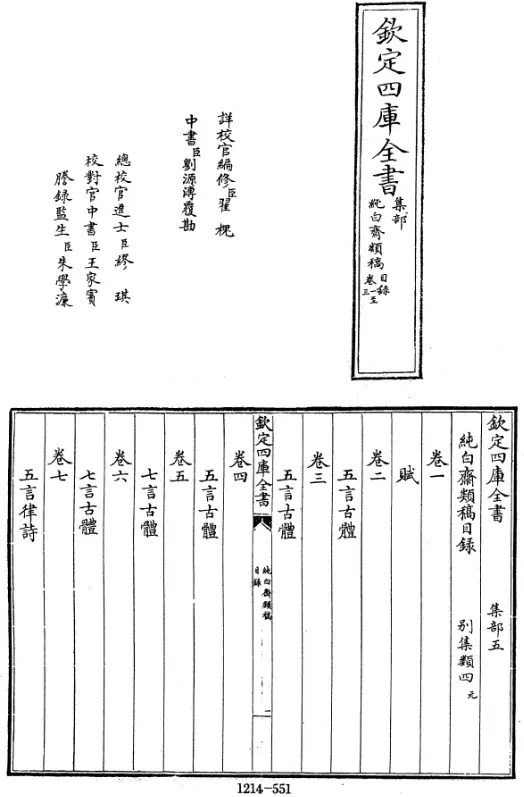 欽定四庫全書
集部
純白齋類稿
目錄
卷一至
三
詳校官編修臣翟槐
中書臣劉源溥覆勘
總校官進士臣繆琪
校對官中書臣王家賓
謄錄監生臣朱學濂
欽定四庫全書 集部五
純白齋類稿目錄 別集類四 元
卷一
賦
卷二
五言古體
卷三
五言古體
欽定四庫全書
純白齋類稿
目錄
一
卷四
五言古體
卷五
七言古體
卷六
七言古體
卷七
五言律詩
1214-551